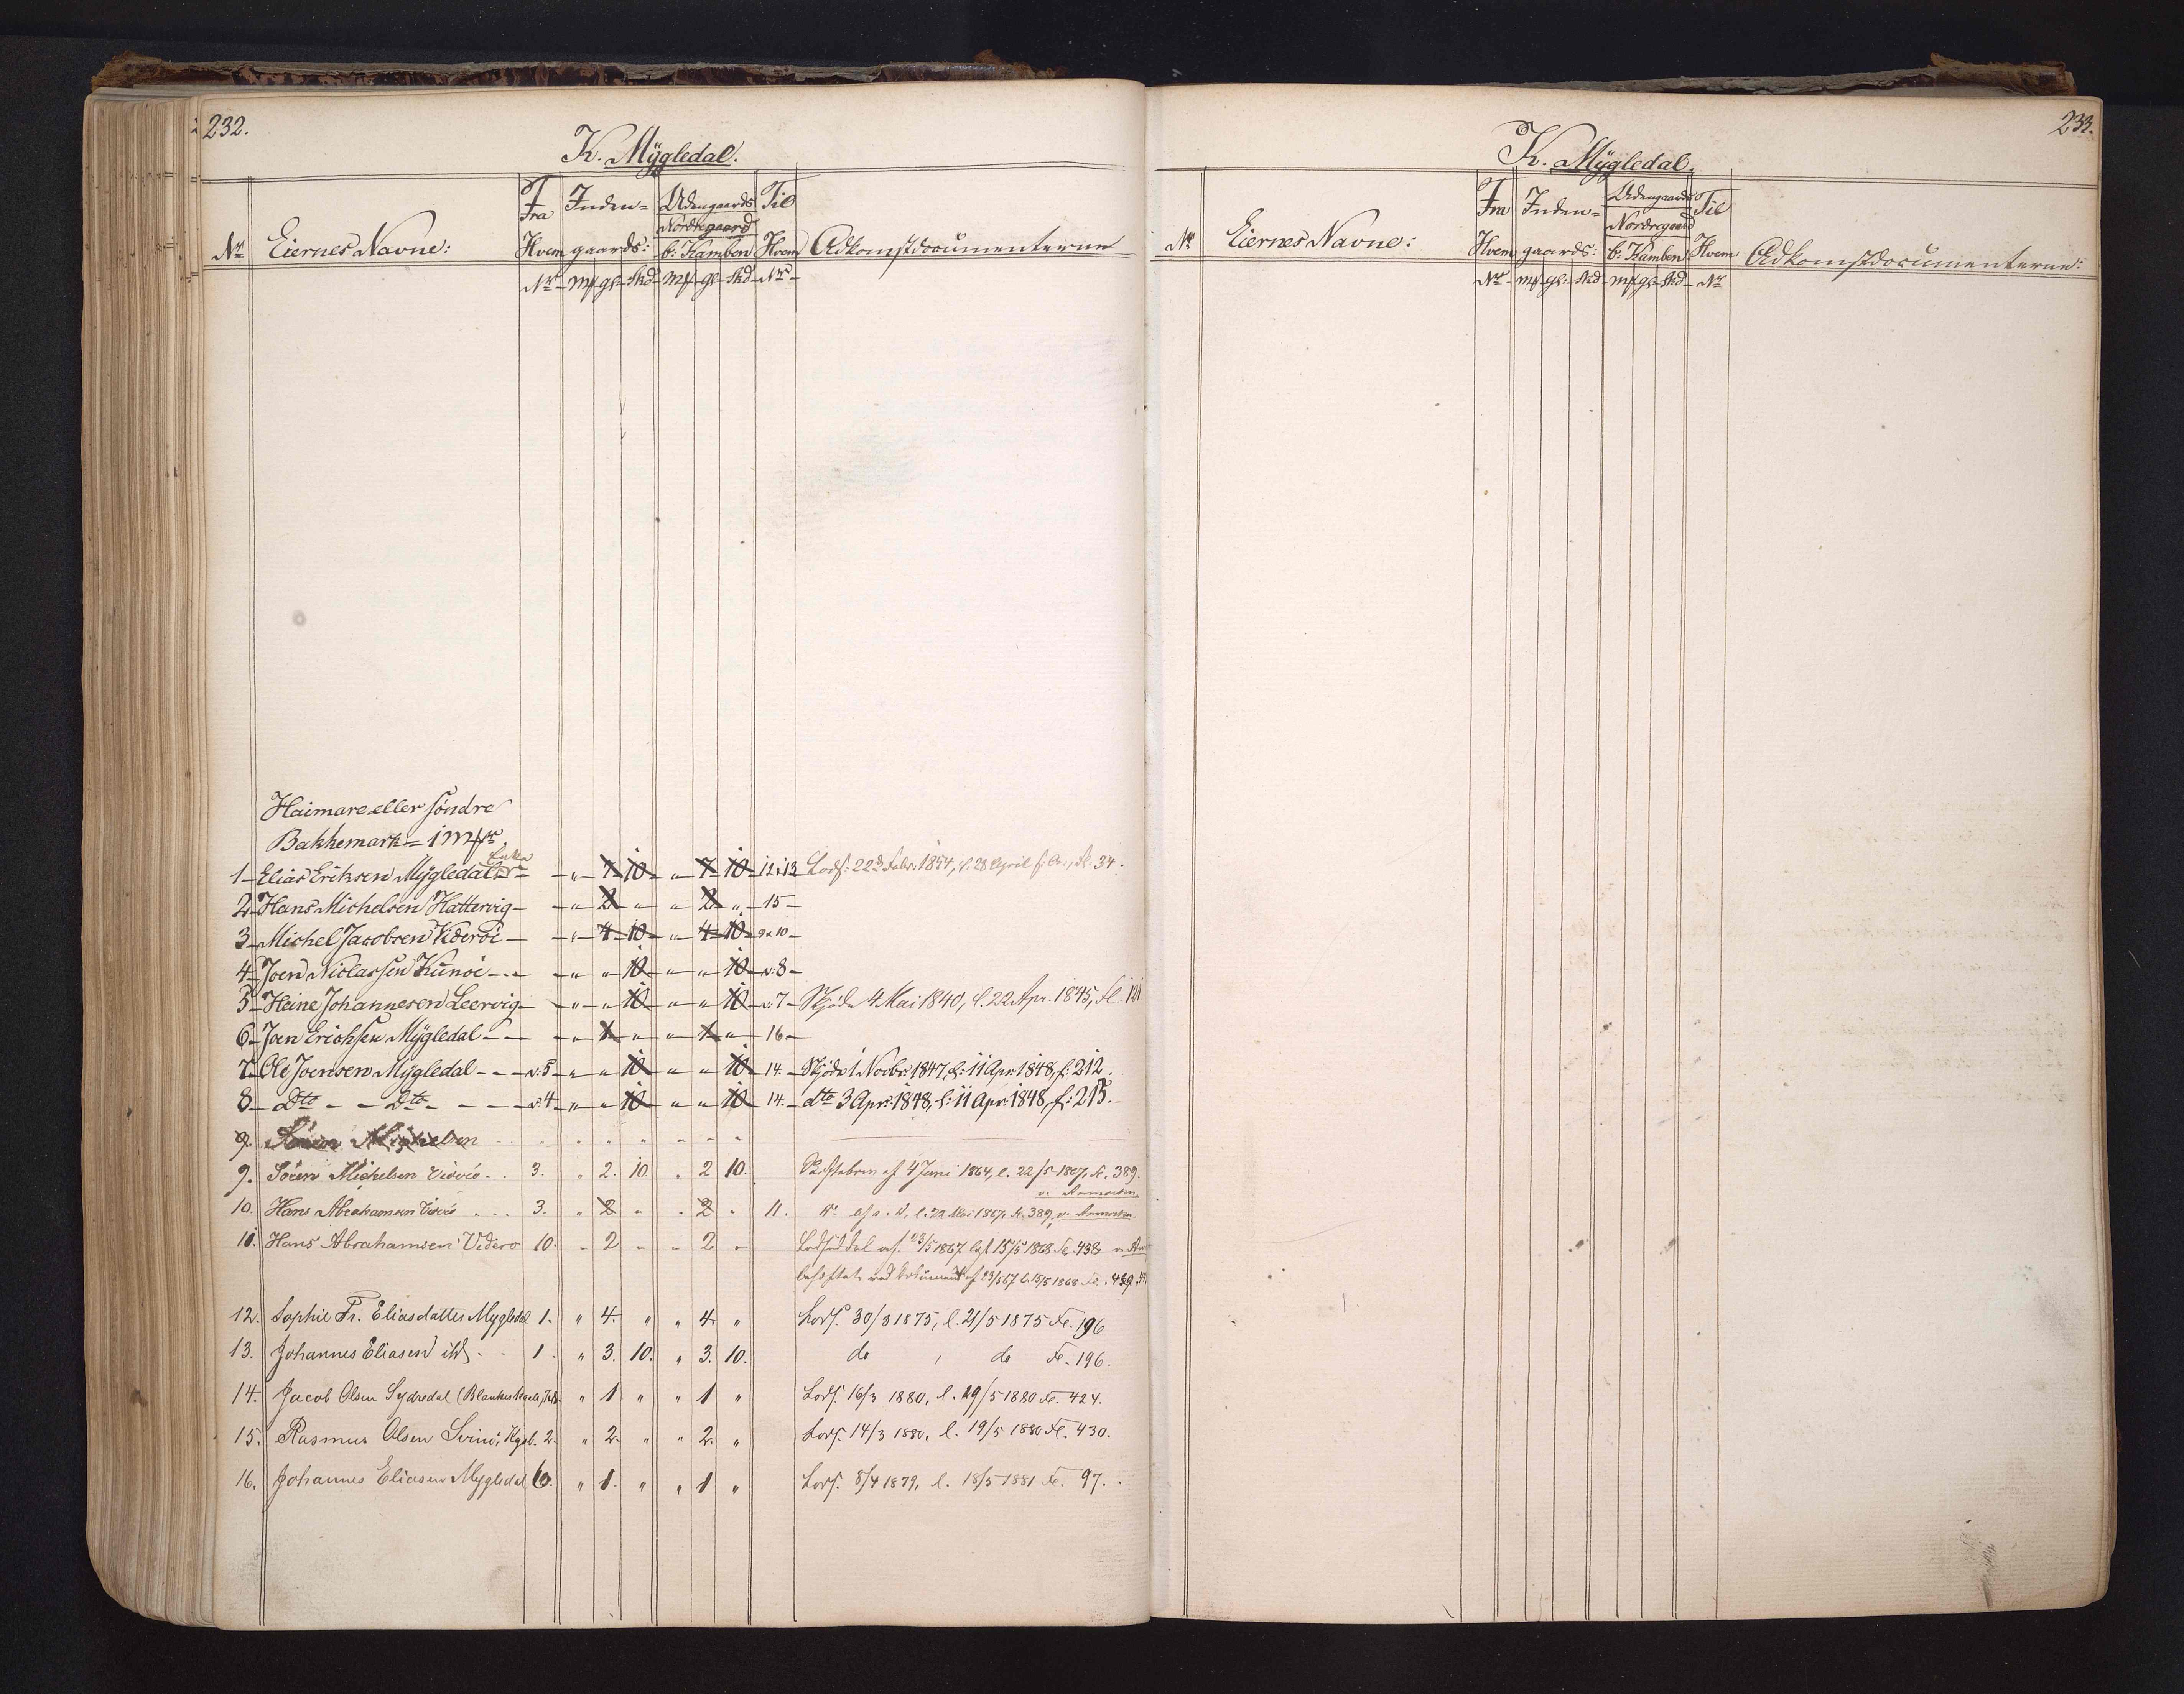 232.
K. Mÿgledal.
Nr Eiernes Navne: Fra Hvem Inden= gaards: Udengaards Nordregaard b: Kamben Til Hvem Adkomstdocumenterne
Nr mk gl Skd mk gl Skd Nr
Haimare eller söndre
Bakkemark = 1 mk
Enke
1 Elias Eriksen Mÿgledals " 7 10 " 7 10 12 & 13 Lods: 22d Febr 1854, l. 28 April s. A., Fl. 34.
2 Hans Michelsen Hattervig " 2 " " 2 " 15
3 Michel Jacobsen Videröe " 4 10 " 4 10 9 & 10
4 Joen Niclassen Kunöe " " 10 " " 10 v: 8
5 Heine Johannesen Leervig " " 10 " " 10 v: 7 Skjöde 4 Mai 1840, l. 22 Apr. 1845, Fl. 121
6 Joen Erichsen Mÿgledal " 1 " " 1 " 16
7 Ole Joensen Mÿgledal v: 5 " " 10 " " 10 14. Skjöde 1 Novbr 1847, l: 11 Apr: 1848, f: 212.
8 Dto Dto v: 4 " " 10 " " 10 14. dto 3 Apr: 1848, l: 11 Apr: 1848, f: 215.
9. Sören Michelsen
9. Sören Michelsen Viderö 3. " 2. 10. " 2 10. af 4 Juni 1864, l. 22/5 1867, Fl. 389.
v. Anmærkn.
10. Hans Abrahamsen Viderö 3. " 2 " " 2 " 11. l. 22 Mai 1867 Fl. 389, v. Anmærkn.
11. Hans Abrahamsen Viderö 10. " 2 " " 2 " Lodseddel af 23/5 1867 lgl 15/5 1868 Fl. 438
ved Dokument af 23/5 67 l. 15/5 1868 Fl. 439.
12. Sophie Fr. Eliasdatter Mygledal 1. " 4. " " 4. " Lods. 30/3 1875, l. 21/5 1875 Fl. 196
13. Johannes Eliasen ibd. 1. " 3. 10. " 3. 10. do , do Fl. 196.
14. Jacob Olsen Sydredal " 1 " " 1 " Lods. 16/3 1880, l. 29/5 1880 Fl. 424.
15. Rasmus Olsen Svinö, Kgsb. 2. " 2. " " 2. " Lods. 14/3 1880, l. 19/5 1880 Fl. 430.
16. Johannes Eliasen Mygledal 6. " 1. " " 1 " Lods. 8/4 1879, l. 18/5 1881 Fl. 97.
233.
K. Mÿgledal.
Nr Eiernes Navne: Fra Hvem Inden= gaards: Udengaards Nordregaard b: Kamben Til Hvem Adkomstdocumenterne:
Nr mk gl: Skd mk gl Skd Nr